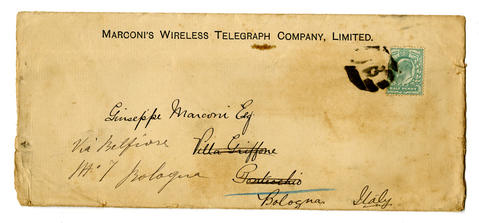 MARCONI'S WIRELESS TELEGRAPH COMPANY, LIMITED.
HALF PENNY
Giuseppe Marconi Esq
Villa Griffone
Via Belfiore
Pontecchio
Nº 1 Bologna
Bologna
Italy